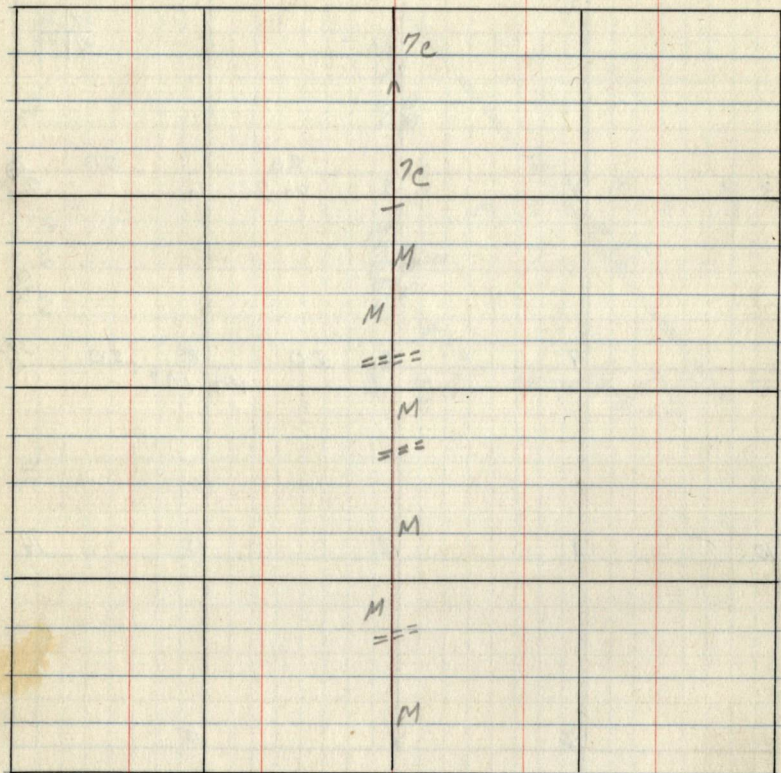 7c
7c
M
M
M
M
M
M